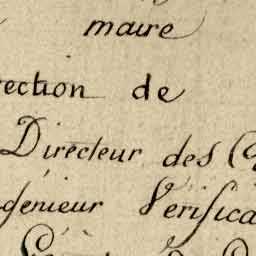 maire
rection de
Directeur des C
génieur Vérifica